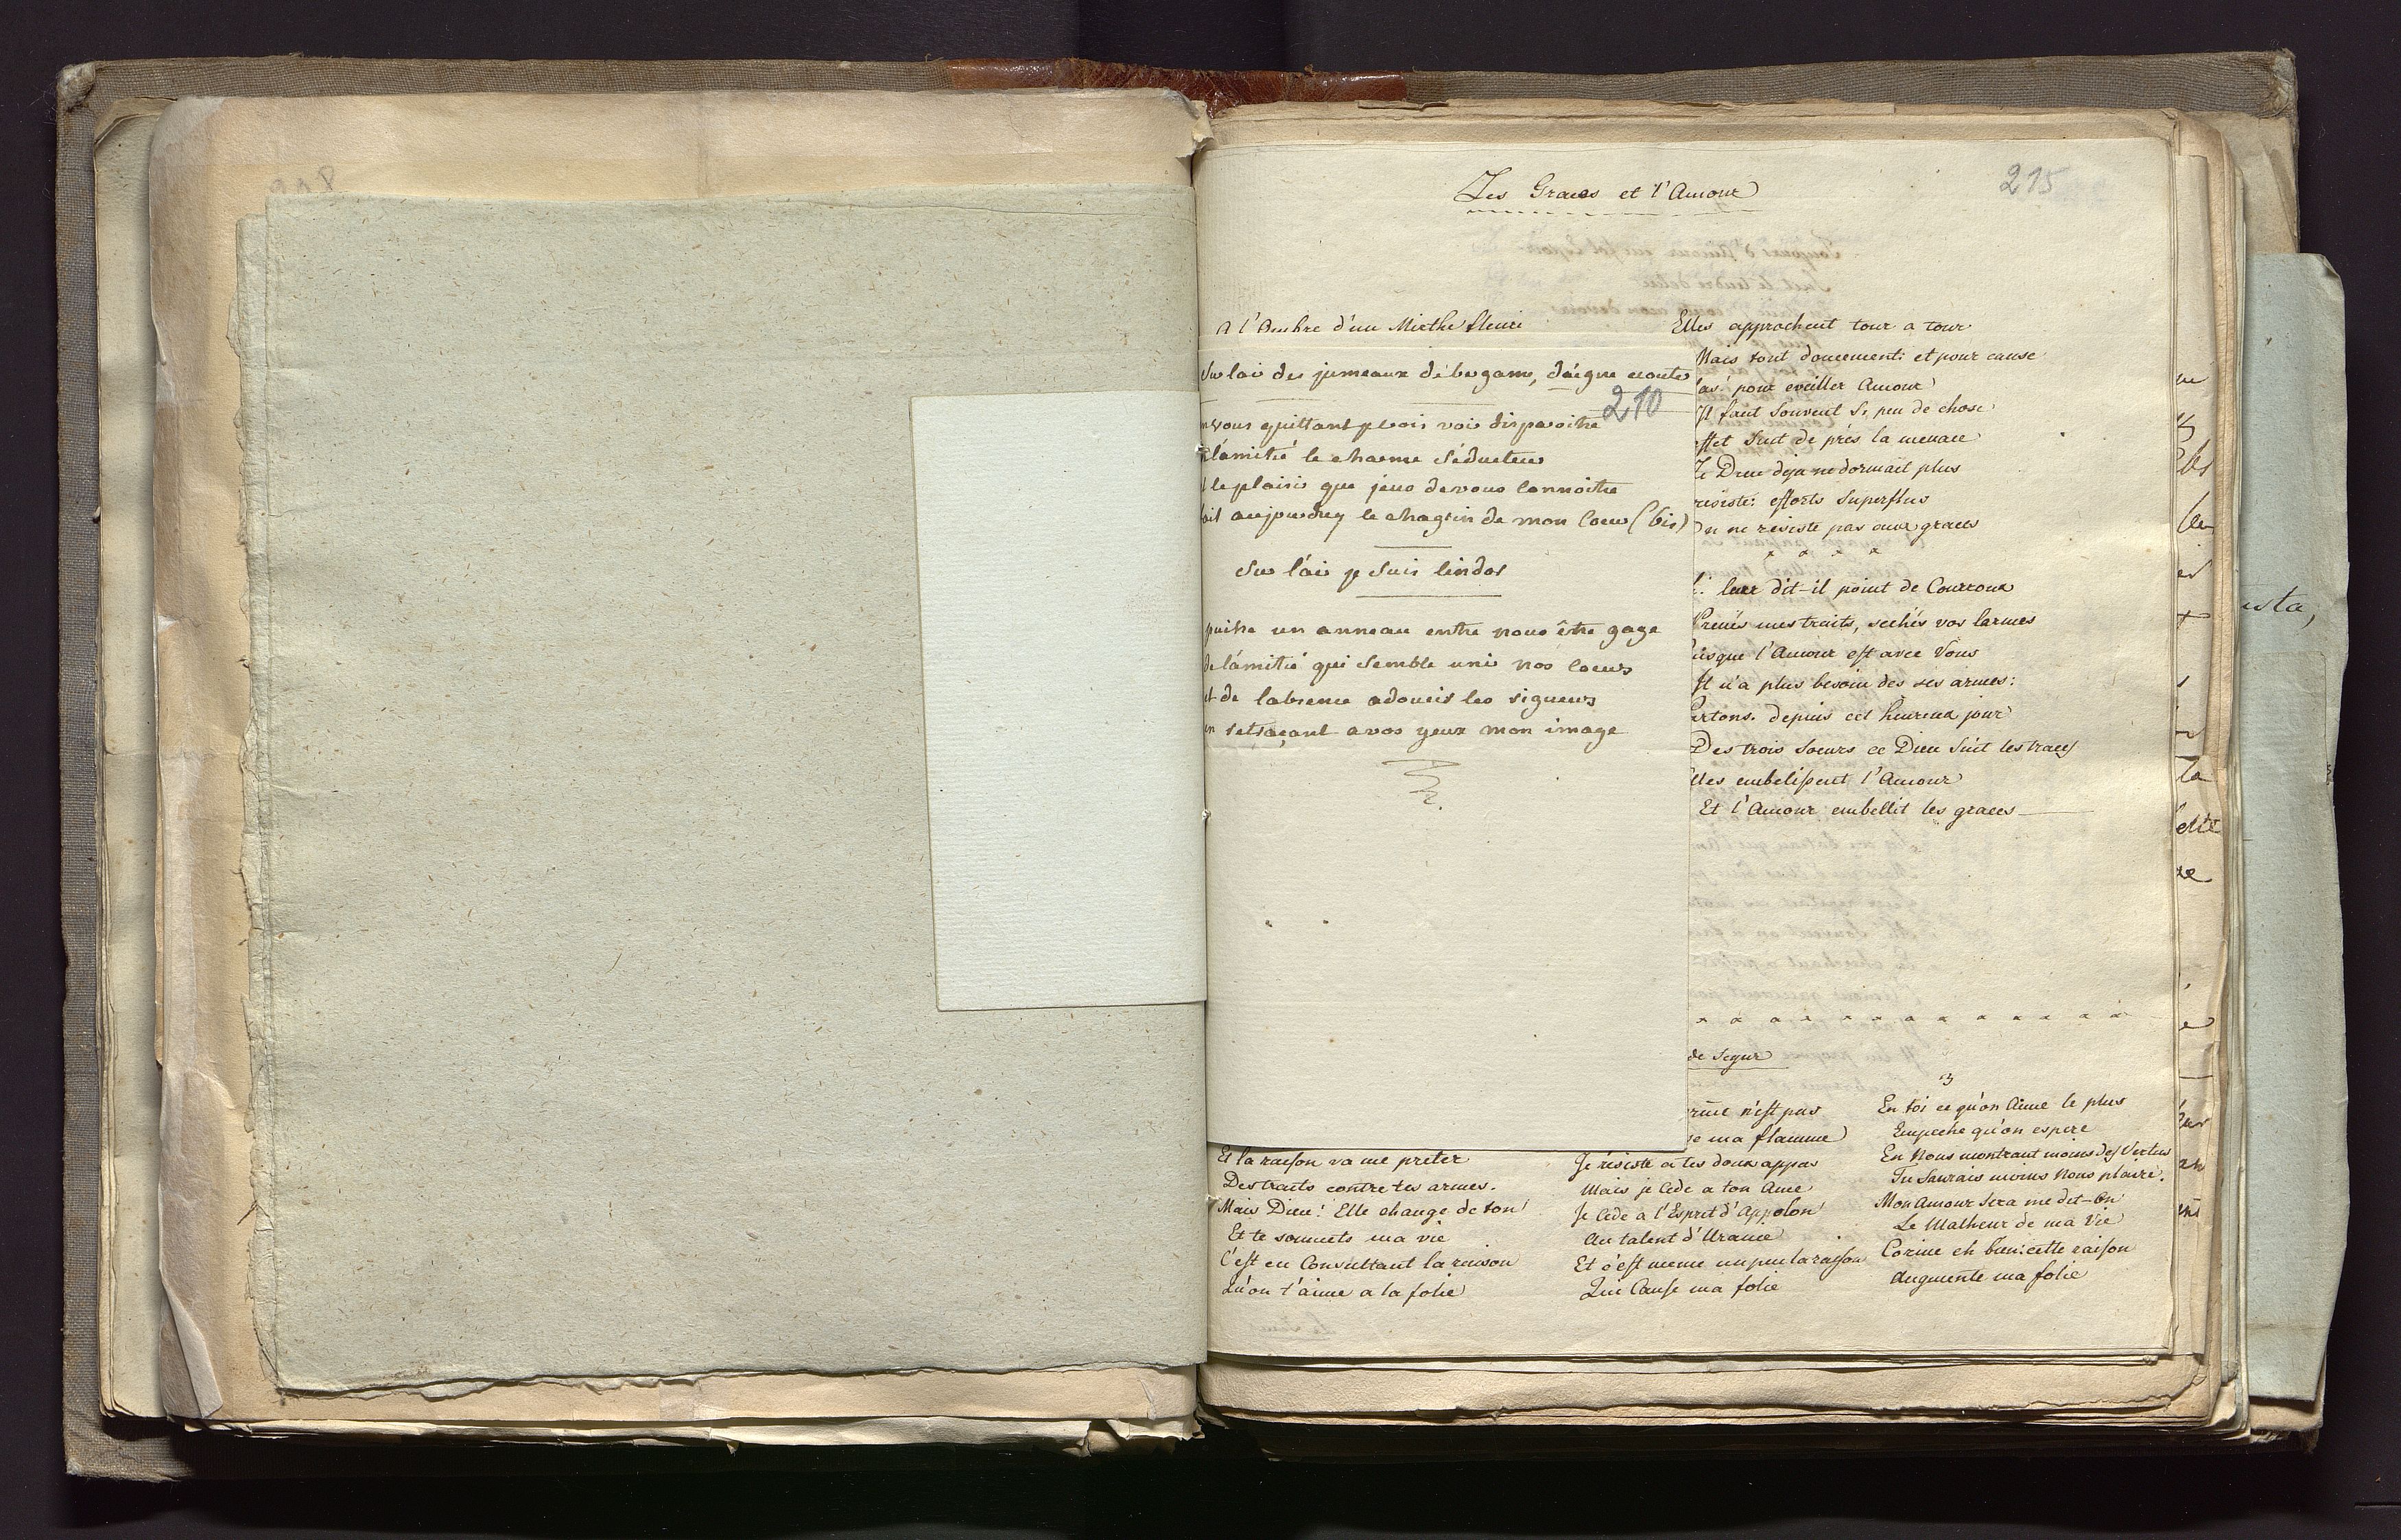 Les Graces et l'Amour
215
A l'Ombre d'un Mirthe fleuri
Sur lair des jumeaux de bergame, daigne ecouter
210
vous quittant je vois disparoitre
lamitié le charme séducteur
le plaisir que jeus de vous connoitre
fait aujourduy le chagrin de mon coeur (bis)
Sur l'air je suis lindor
puisse un anneau entre nous être gage
de lamitié qui semble unir nos coeurs
et de labsence adoucir les rigueurs
en retraçant a vos yeux mon image
Elles approchent tour a tour
Mais tout doucement: et pour cause
pour eveiller Amour
Il faut souvent si peu de chose
suit de près la menace
Le Dieu deja ne dormait plus
resiste: efforts superflus
On ne resiste pas aux graces
leur dit-il point de Courroux
Prenés mes traits, sechés vos larmes
isque l'Amour est avec Vous
Il n'a plus besoin des ses armes:
Partons. depuis cet heureux jour
Des trois soeurs ce Dieu suit les traces
Elles embelissent l'Amour
Et l'Amour embellit les graces
de Segur
n'est pas
ma flamme
Et la raison va me preter
Des traits contre tes armes.
Mais Dieu! Elle change de ton
Et te soumets ma vie
C'est en Consultant la raison
Qu'on t'aime a la folie
Je résiste a tes doux appas
Mais je cede a ton Ame
Je cede a l'Esprit d'Appolon
Au talent d'Uranie
Et c'est meme un peu la raison
Qui Cause ma folie
3
En toi ce qu'on Aime le plus
Empeche qu'on espere
En Nous montrant moins des Vertus
Tu Saurais moins Nous plaire.
Mon Amour sera me dit-On
Le Malheur de ma Vie
Corine eh bien: cette raison
Augmente ma folie